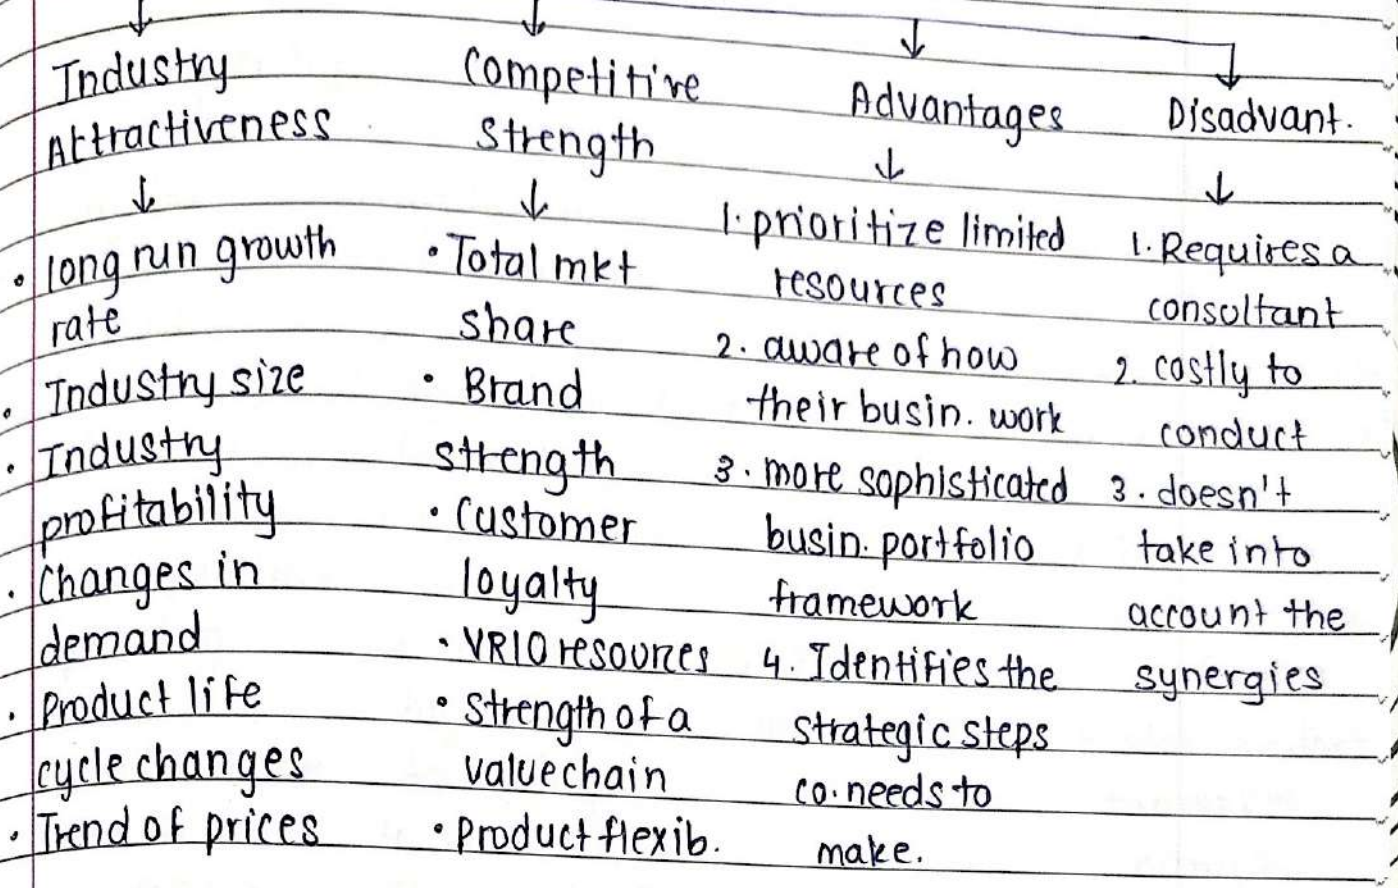 Industry
Attractiveness
long run growth
rate
Industry size
Industry
profitability
Changes in
demand
Product life
cycle changes
Trend of prices
Competitive
Strength
• Total mkt
share
• Brand
strength
• Customer
loyalty
• VRIO resources
• Strength of a
value chain
• Product flexib.
Advantages
1. prioritize limited
resources
2. aware of how
their busin. work
3. more sophisticated
busin. portfolio
framework
4. Identifies the
strategic steps
co. needs to
make.
Disadvant.
1. Requires a
consultant
2. costly to
conduct
3. doesn't
take into
account the
synergies